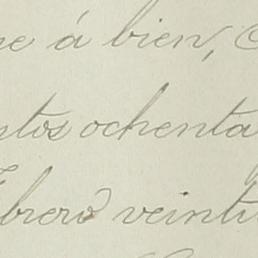 ne á bien,
ntos ochenta
ebrero veinti